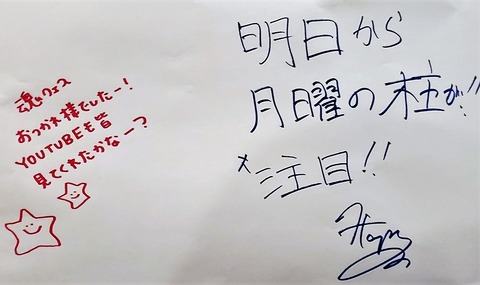 明日から
月曜の柱が!!
*注目!!
魂ウェス
おつかれ様でしたー!
YOUTUBEも皆
見てくれたかなー?